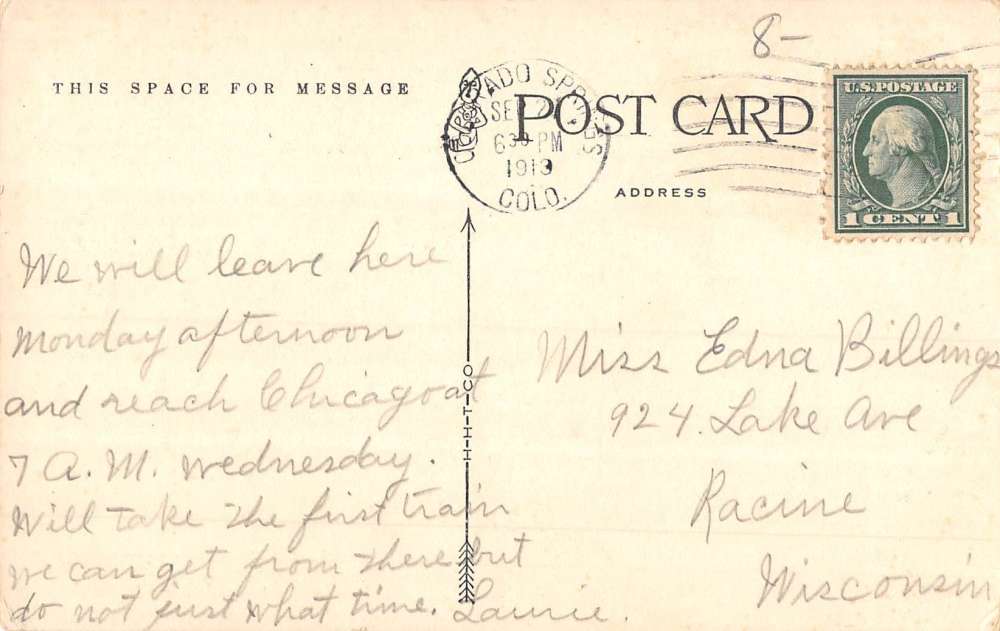 8-
THIS SPACE FOR MESSAGE
COLORADO SPRINGS
SEP 2
6 30 PM
1913
COLO.
POST CARD
ADDRESS
U.S. POSTAGE
1 CENT 1
We will leave here
monday afternoon
and reach Chicago at
7 A.M. Wednesday.
Will take the first train
we can get from there but
do not just what time. Laurie.
H-H-T-CO
Miss Edna Billings
924. Lake Ave
Racine
Wisconsin